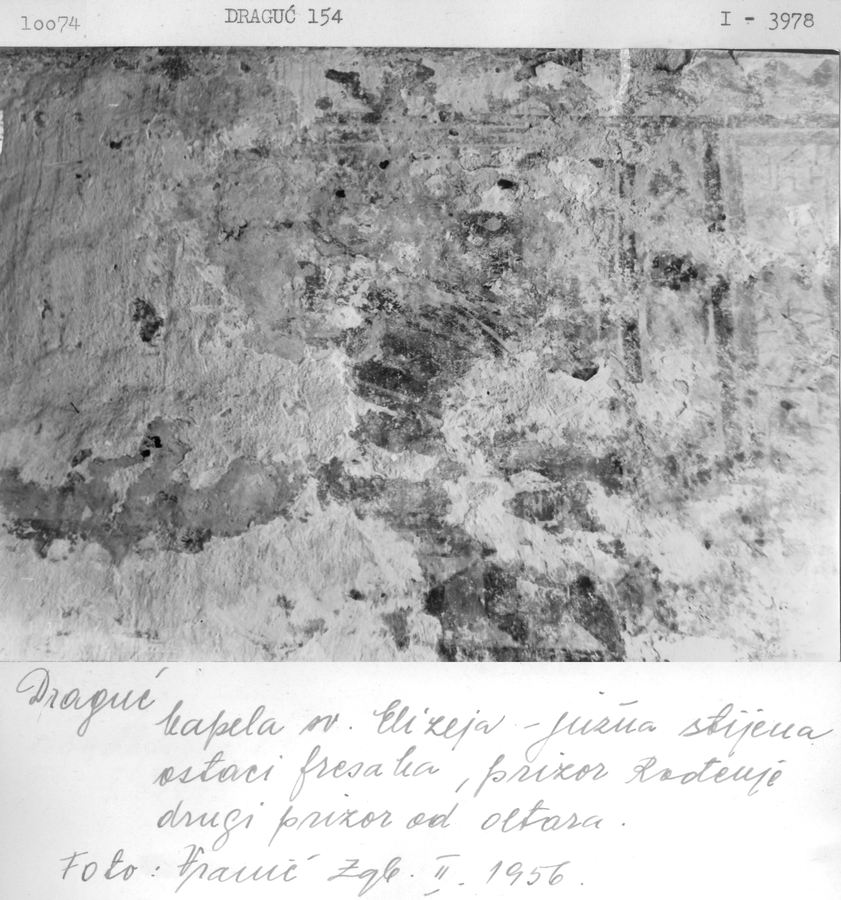 10074
DRAGUĆ 154
I - 3978
Draguć
kapela sv. Elizeja - južna stijena
ostaci fresaka, prizor Rođenje
drugi prizor od oltara.
Foto: Vranić Zgb. II. 1956.